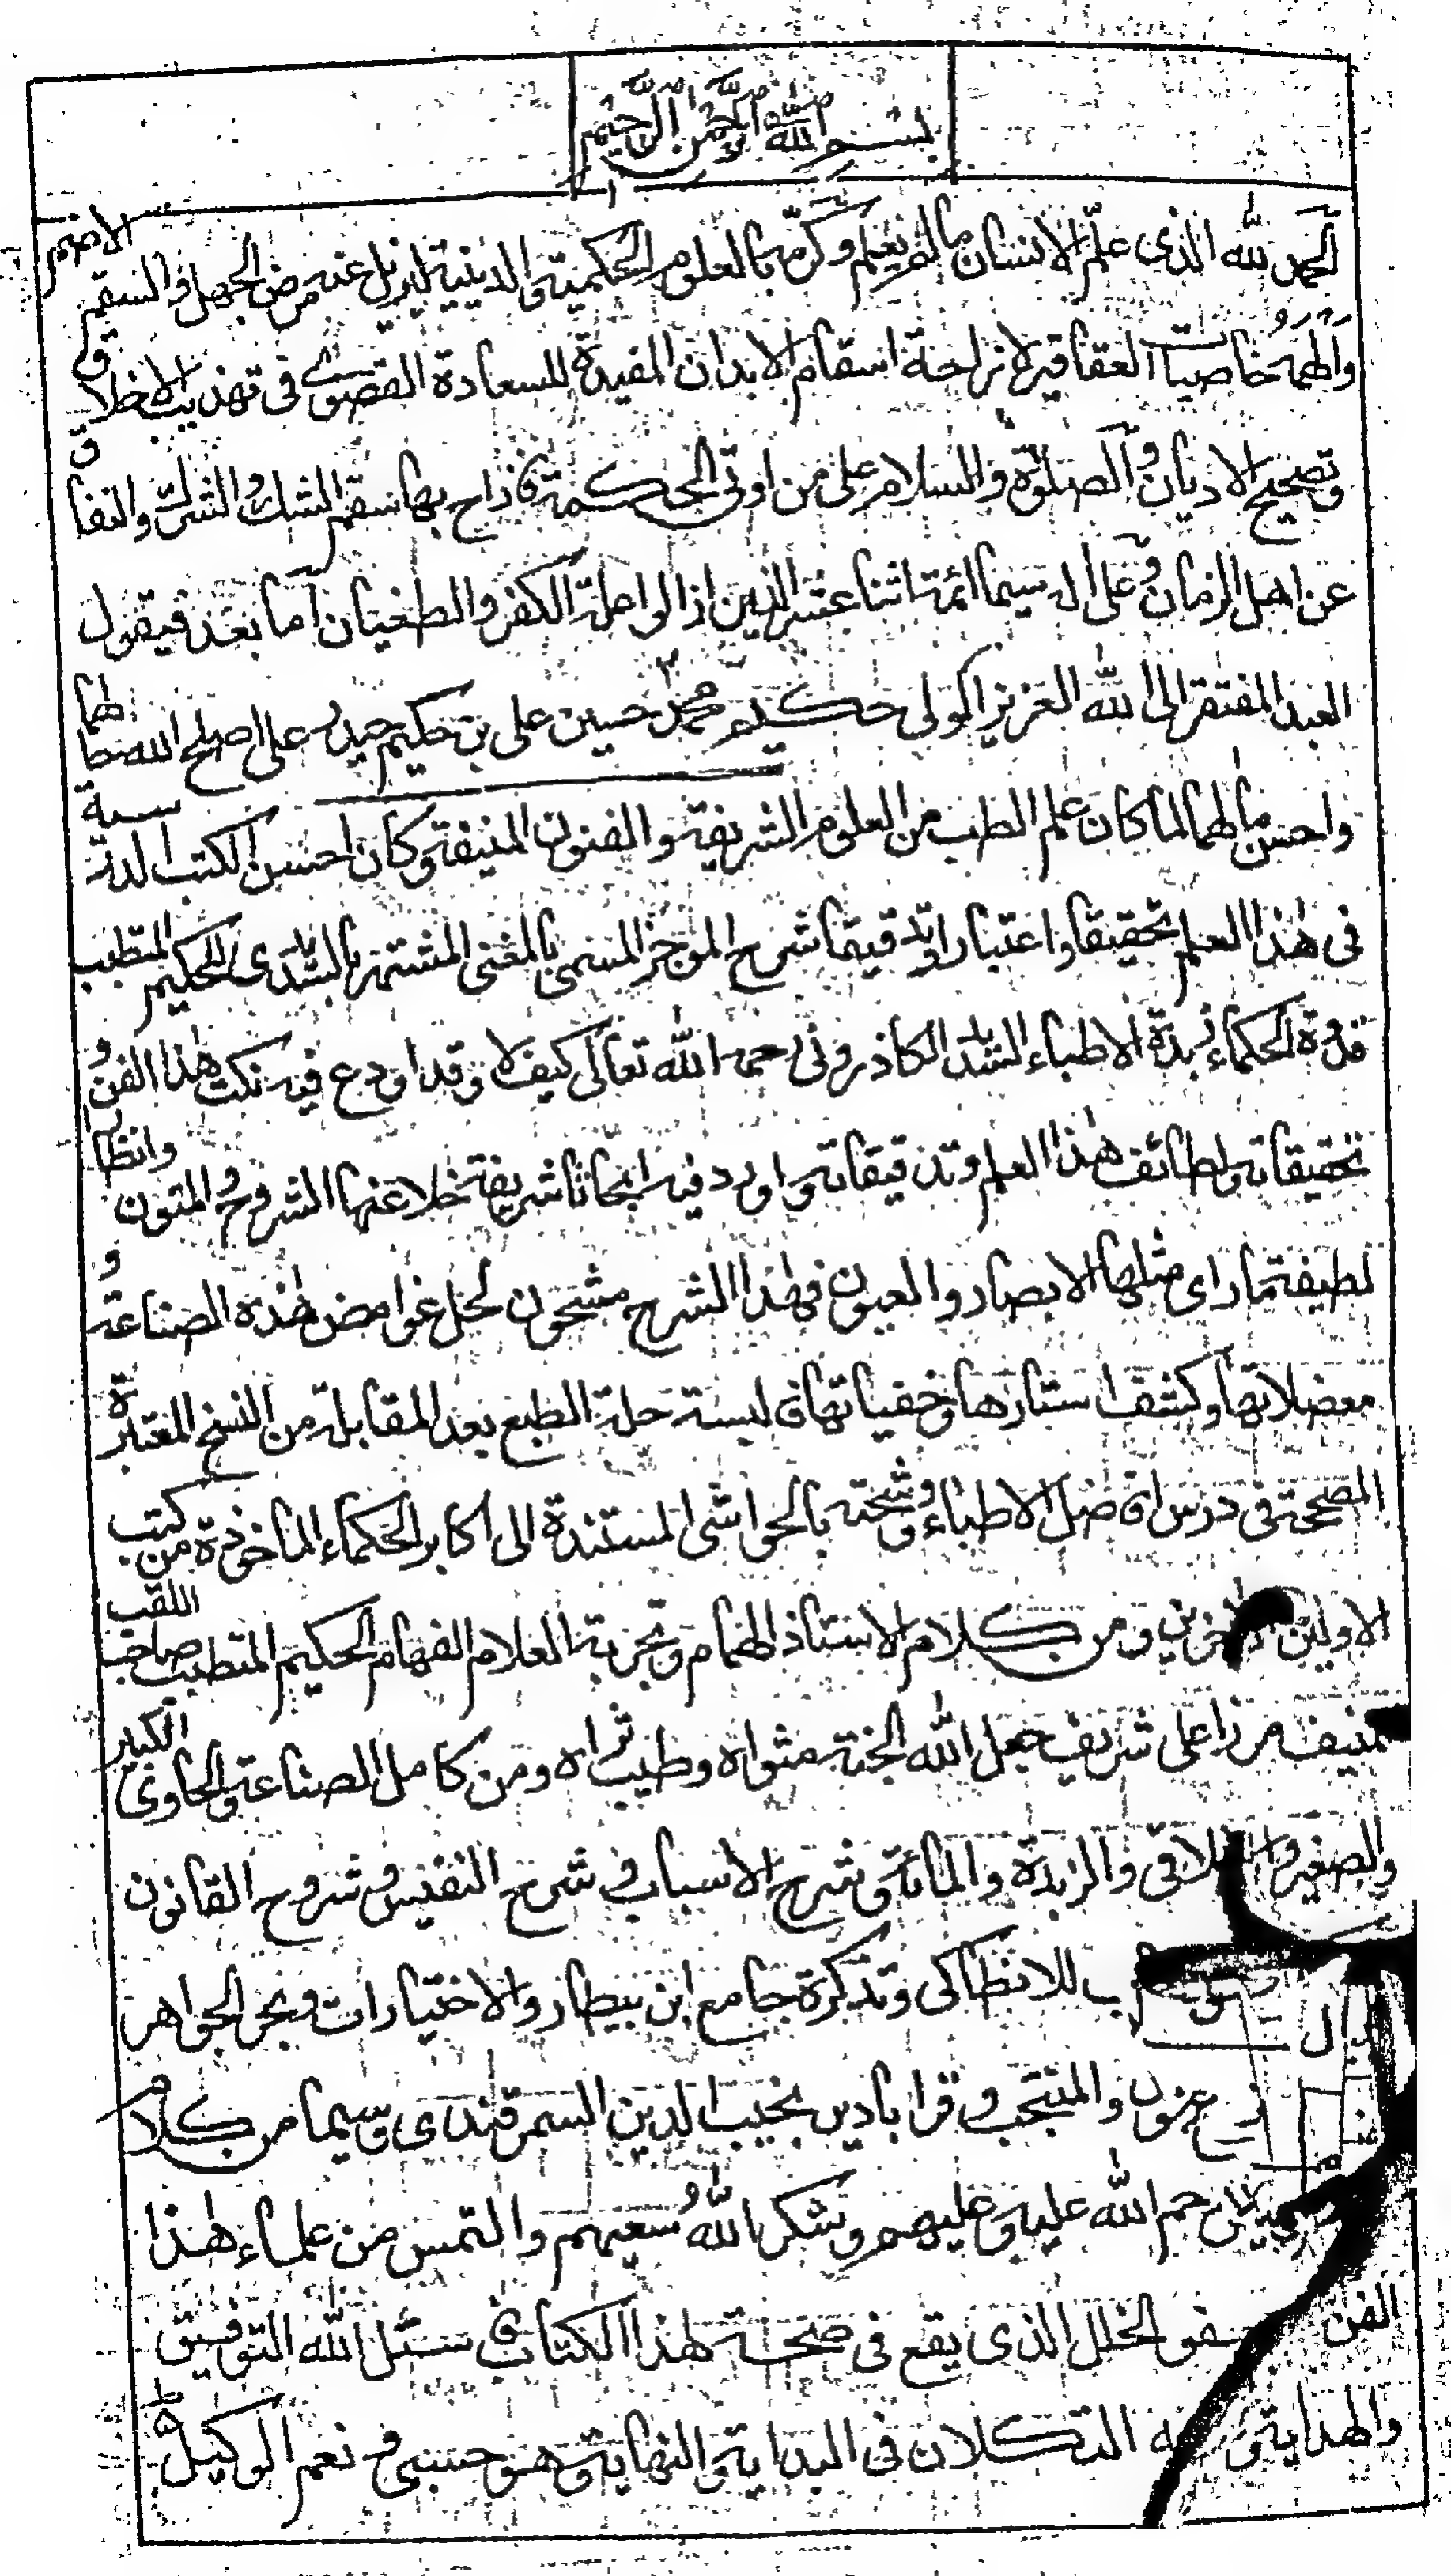 بسم الله الرحمن الرحيم
الحمد لله الذى علم الانسان ما لم يعلم وكرمه بالعلوم الحكمية والدينية ليزيل عنه مرض الجهل والسقم الاضم
والهمه خاصيات العقاقير لازاحة اسقام الابدان المفيدة للسعادة القصوى فى تهذيب الاخلاق و
تصحيح الاديان والصلوة والسلام على من اوتى الحكمة فازاح بها سقم الشك والشرك والنفاق
عن اهل الزمان وعلى اله سيما ائمة اثنا عشر الذين ازالوا علة الكفر والطغيان اما بعد فيقول
العبد المفتقر الى الله العزيز المولى حكيم محمد حسين على بن حكيم حيدر على اصلح الله حالهما
واحسن مالهما لما كان علم الطب من العلوم الشريفة والفنون المنيفة وكان احسن الكتب
فى هذا العلم تحقيقا واعتبارا وتدقيقا شرح الموجز المسمى بالمغنى المشتهر بالسديدى للحكيم المتطبب
قدوة الحكماء زبدة الاطباء السديد الكاذرونى رحمه الله تعالى كيف لا وقد اودع فيه نكت هذا الفن و
تحقيقاته ولطائف هذا العلم وتدقيقاته واورد فيه ابحاثا شريفة خلا عنها الشروح والمتون وانظارا
لطيفة ما راى مثلها الابصار والعيون فهذا الشرح مشحون لحل غوامض هذه الصناعة و
معضلاتها وكشف استارها وخفياتها فالبسته حلة الطبع بعد المقابلة من النسخ المعتبرة
المصححة فى درس افاضل الاطباء ووشحته بالحواشى المستندة الى اكابر الحكماء الماخوذة من كتب
الاولين والاخرين ومن كلام الاستاذ الهمام وتجربة العلام الفهام الحكيم المتطبب صاحب اللقب
المنيف مرزا على شريف جعل الله الجنة مثواه وطيب ثراه ومن كامل الصناعة والحاوى الكبار
والصغير والزبدة والمائة وشرح الاسباب وشرح النفيس وشروح القانون
للانطاكى وتذكرة جامع ابن بيطار والاختيارات وبحر الجواهر
والمنتجب وقرابادين نجيب الدين السمرقندى وسيما من كلام
رحم الله عليه وعليهم وشكر الله سعيهم والتمس من علماء هذا
الفن الخلل الذى يقع فى صحة هذا الكتاب فنسئل الله التوفيق
والهداية و التكلان فى البداية والنهاية وهو حسبى ونعم الوكيل